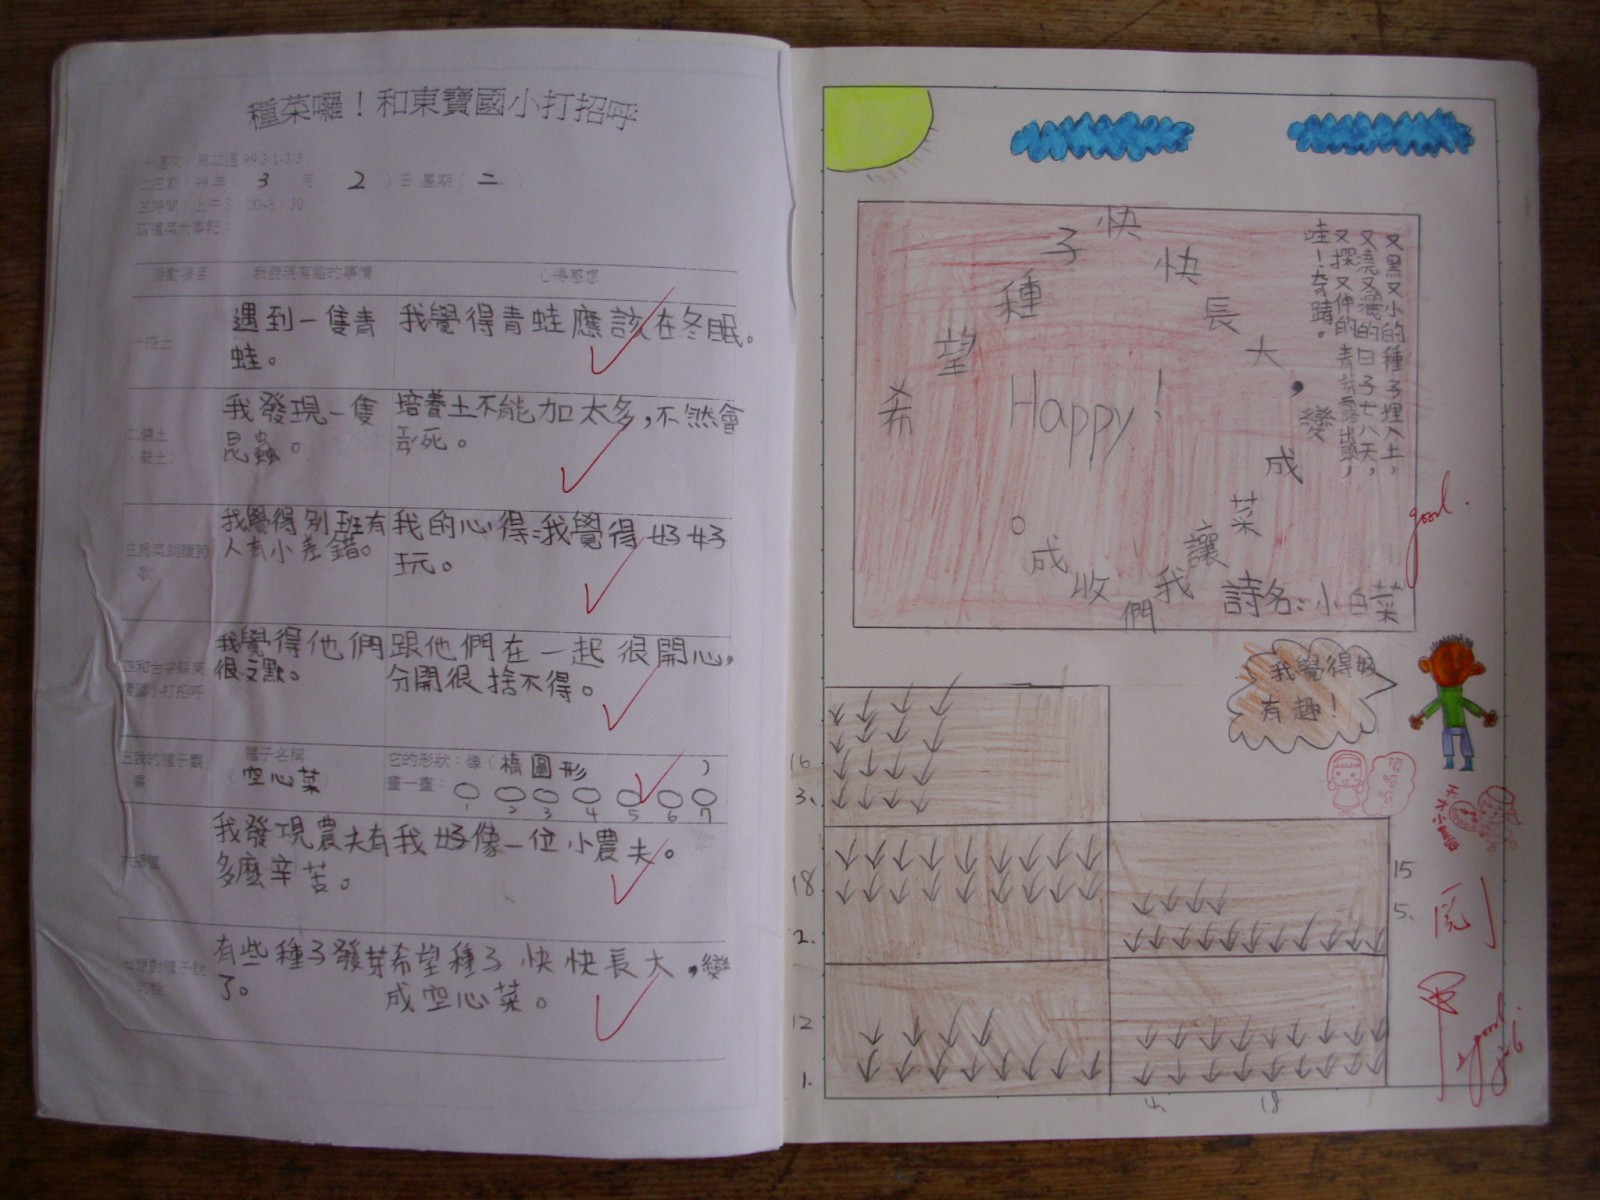 種菜囉！和東寶國小打招呼
一週次：第二週 99.3/1-3/5
二日期：99年（ 3 ）月（ 2 ）日 星期（ 二 ）
三時間：上午8：00-8：30
四種菜大事記：
活動項目 我發現有趣的事情 心得感想
一挖土 遇到一隻青 我覺得青蛙應該在冬眠。
蛙。
我發現一隻 培養土不能加太多，不然會
昆蟲。 死。
我覺得別班有 我的心得：我覺得好好
人有小差錯。 玩。
歌
我覺得他們 跟他們在一起很開心，
很文默。 分開很捨不得。
四和台中縣東
寶國小打招呼
五我的種子觀 種子名稱 它的形狀：像（橢圓形 ）
察 （空心菜 畫一畫：
1 2 3 4 5 6 7
我發現農夫有 我好像一位小農夫。
多麼辛苦。
有些種子發芽 希望種子快快長大，變
了。 成空心菜。
希望種子快快長大，變成菜讓我們收成。
Happy！
又黑又小的種子埋入土，
又澆又灌的日子七八天，
又探又伸的青芽露出頭，
哇！奇蹟。
詩名：小白菜
good.
我覺得好
有趣！
16
3.
18
2.
12
1.
15
5.
4. 18
good
job